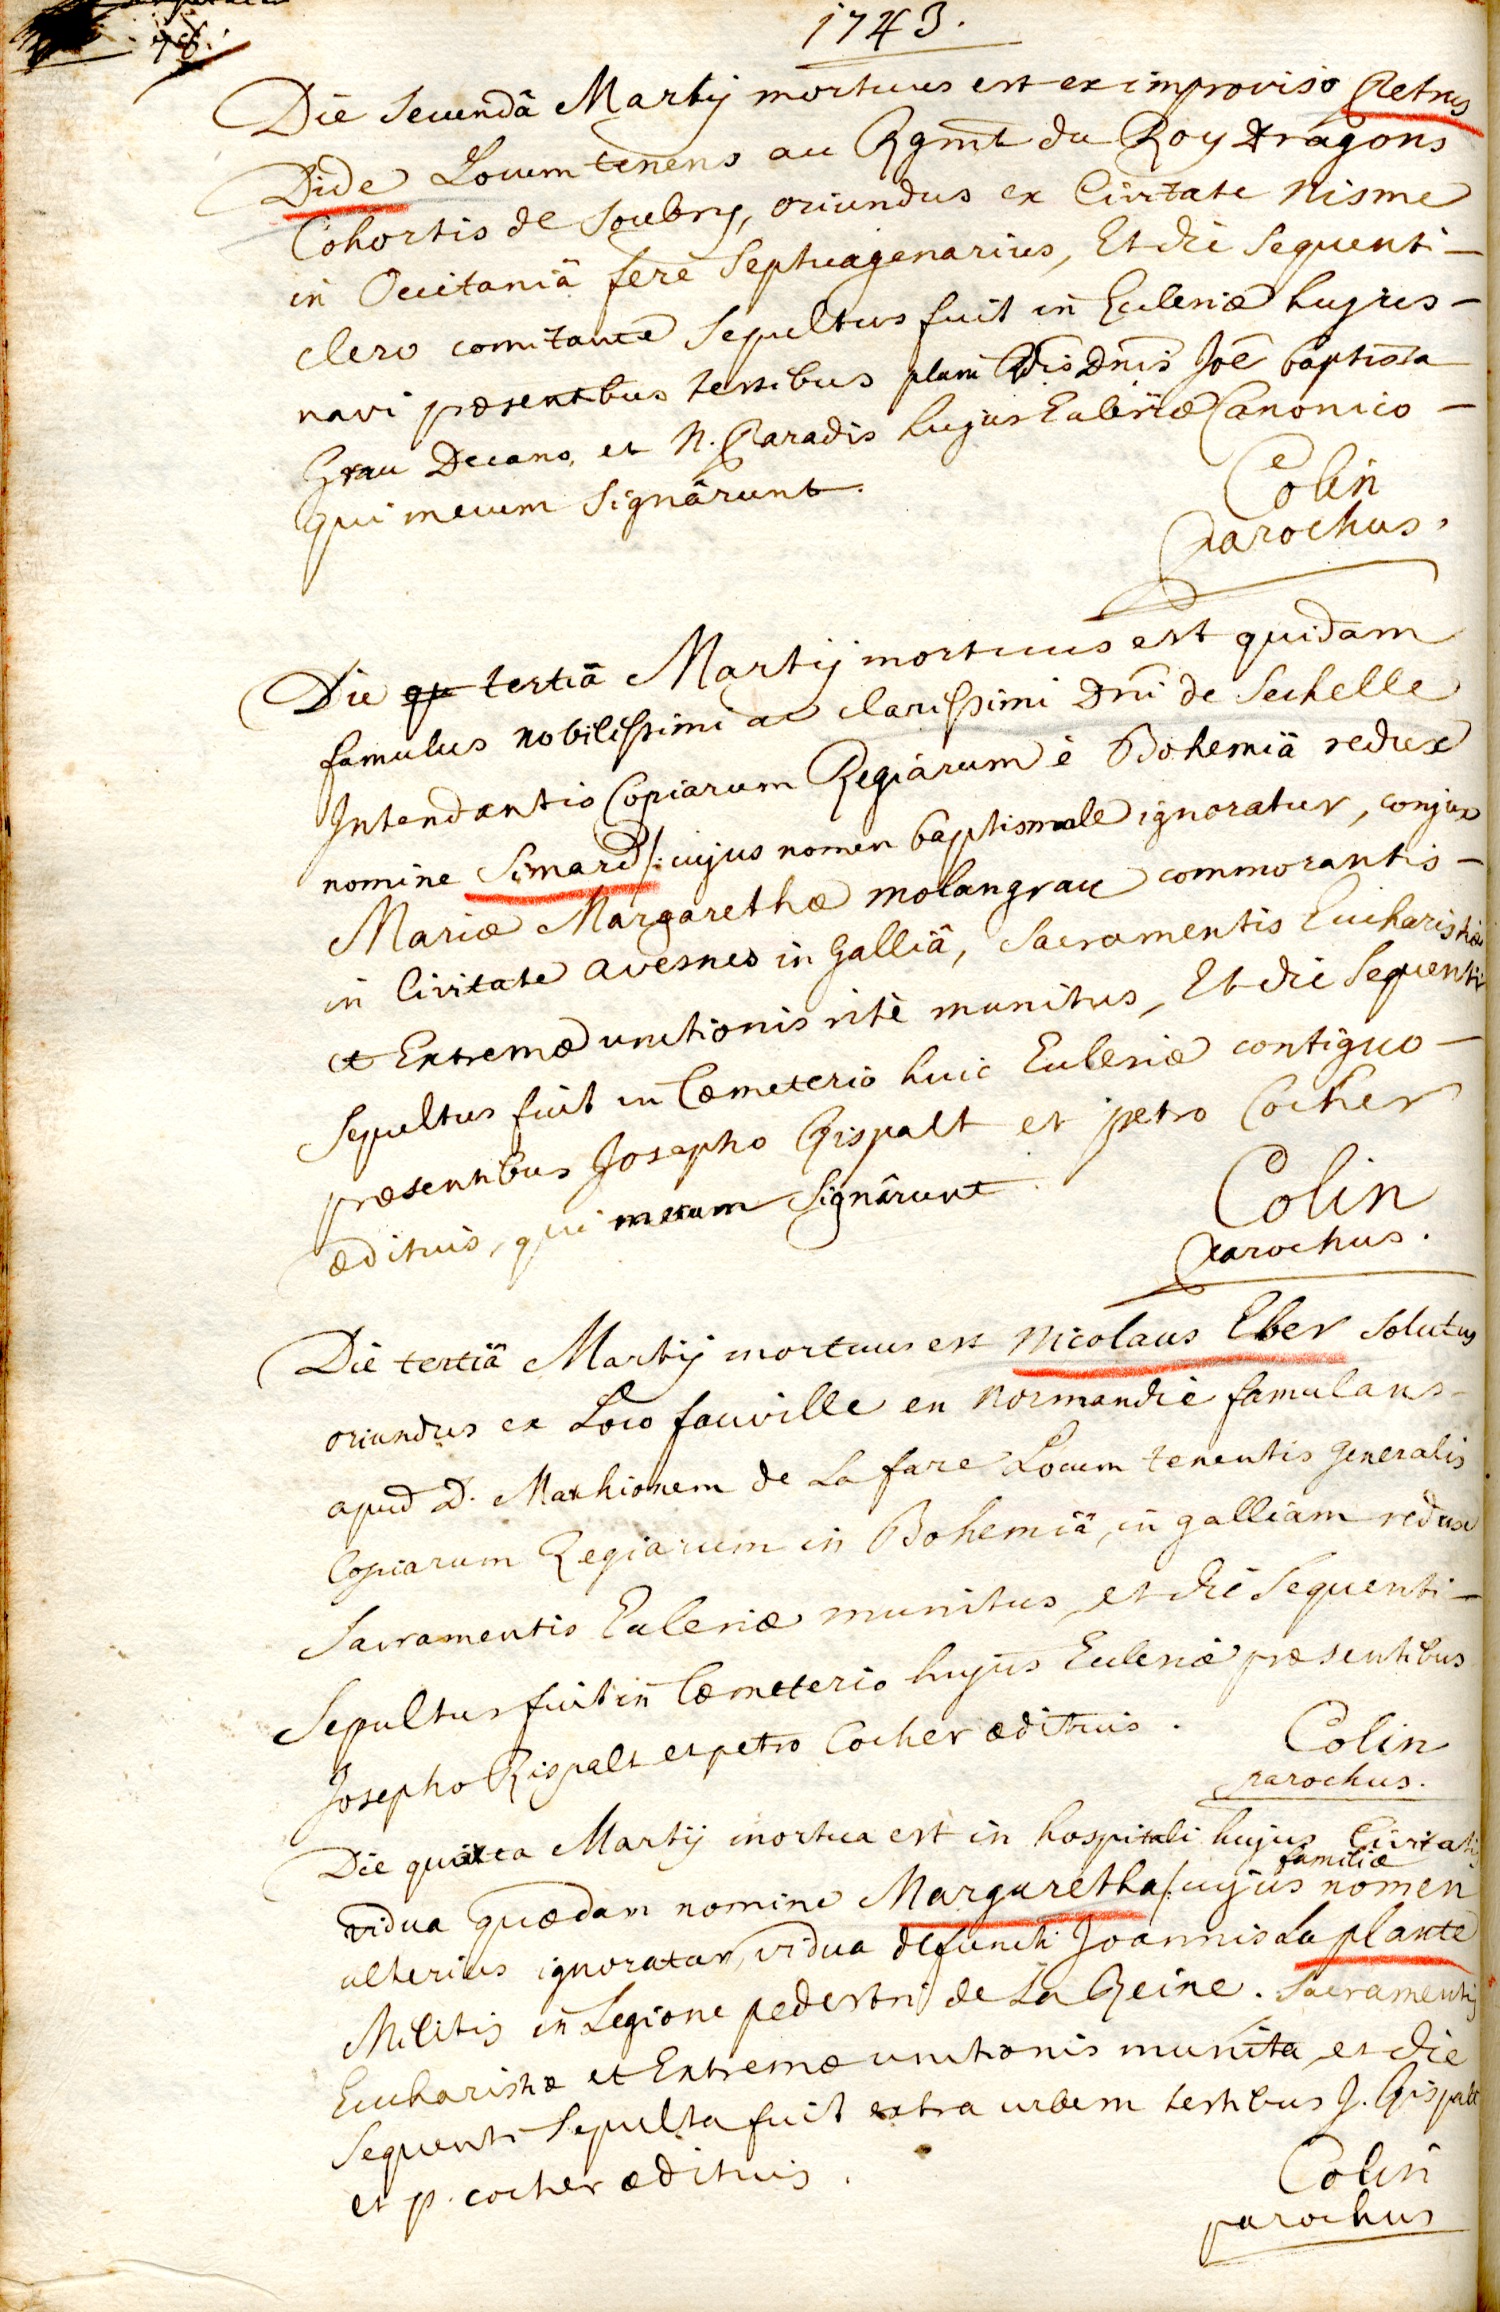 1743.
Die secundâ Martij mortuus est ex improviso Petrus
Dide Locumtenens au Rgmt du Roy Dragons
Cohortis de Soubry, oriundus ex Civitate Nisme
in Occitaniâ ferè Septuagenarius, Et die sequenti
clero comitante sepultus fuit in Ecclesiæ hujus
navi præsentibus testibus plurm Rdis Dnis Joe baptista
Grau Decano, et N. Paradis hujus Ecclesiæ Canonico
qui mecum signârunt.
Colin
parochus.
Die tertiâ Martij mortuus est quidam
famulus nobilissimi ac clarissimi Dni de Sechelle
Intendantis Copiarum Regiarum è Bohemiâ redux
nomine Simard /: cujus nomen baptismale ignoratur, conjux
Mariæ Margarethæ molangrau commorantis
in Civitate avesnes in galliâ, Sacramentis Eucharistiæ
et Extremæ unctionis ritè munitus, Et die sequenti
sepultus fuit in Cæmeterio huic Ecclesiæ contiguo
præsentibus Josepho Rispalt et petro Cocher
ædituis, qui mecum signârunt.
Colin
parochus.
Die tertiâ Martij mortuus est Nicolaus Eber solutus
oriundus ex Loco fauville en Normandie famulans
apud D. Marchionem de La fare Locum tenentis generalis
Copiarum Regiarum in Bohemiâ, in galliam redux
Sacramentis Ecclesiæ munitus et die sequenti
sepultus fuit in Cæmeterio hujus Ecclesiæ præsentibus
Josepho Rispalt et petro Cocher ædituis.
Colin
parochus.
Die Martij mortua est in hospitali hujus Civitatis
vidua quædam nomine Margaretha /: cujus familiæ nomen
ulterius ignoratur, vidua defuncti Joannis La plante
Militis in Legione pedestri de La Reine. Sacramentis
Eucharistiæ et Extremæ unctionis munita et die
sequenti sepulta fuit extra urbem testibus J. Rispalt
et p. cocher ædituis.
Colin
parochus